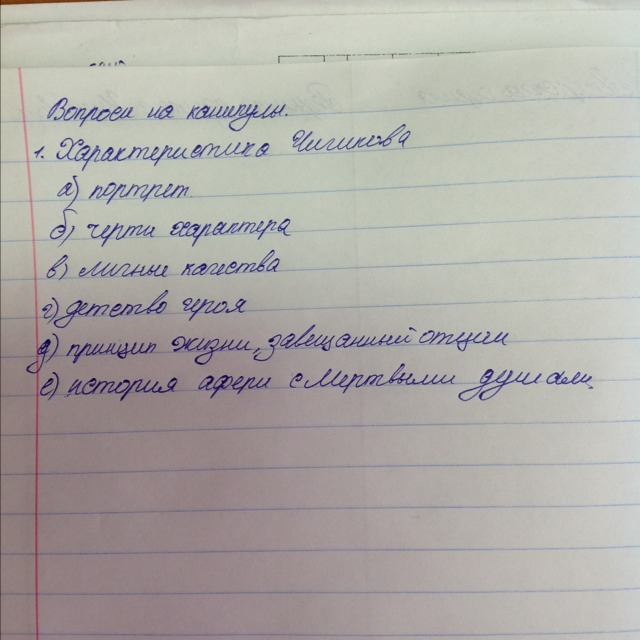 Вопросы на каникулы.
1. Характеристика Чичикова
а) портрет.
б) черты характера
в) личные качества
г) детство героя
д) принцип жизни, завещанный отцом
е) история аферы с Мертвыми душами.